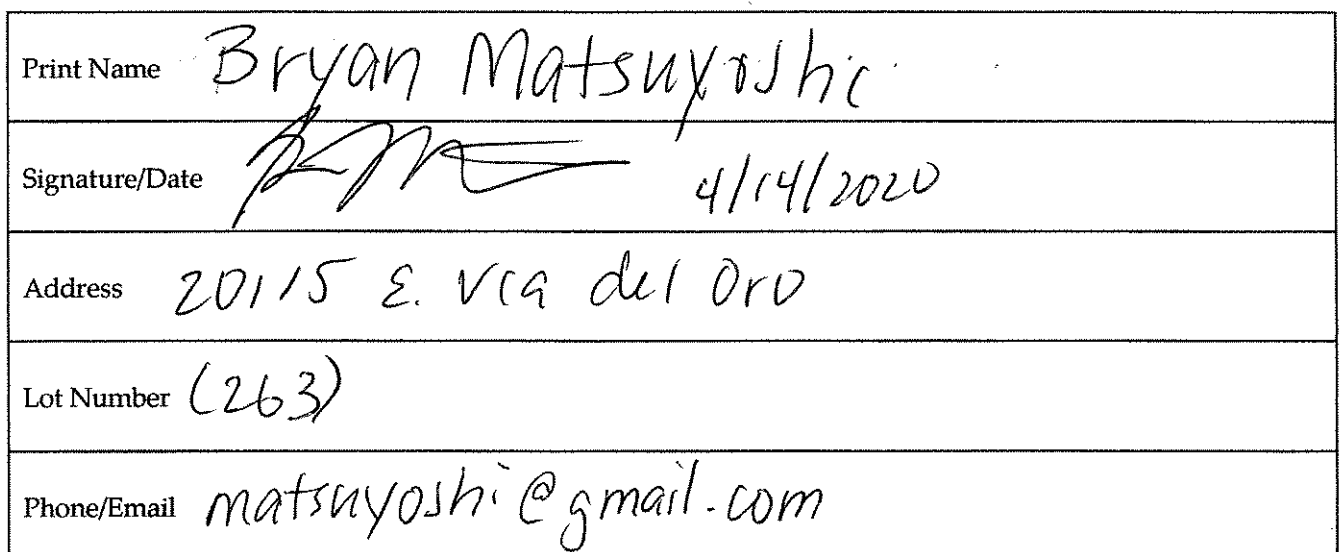 Print Name Bryan Matsuyoshi
Signature/Date 4/14/2020
Address 20115 E. Via del Oro
Lot Number (263)
Phone/Email matsuyoshi@gmail.com